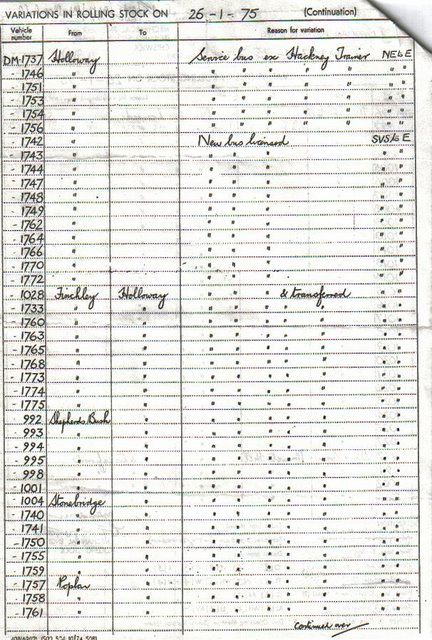 VARIATIONS IN ROLLING STOCK ON 26-1-75 (Continuation)
Vehicle number From To Reason for variation
DM-1737 Holloway Service bus ex Hackney Trainer NE&E
- 1746 " " " " " " " "
- 1751 " " " " " " " "
- 1753 " " " " " " " "
- 1754 " " " " " " " "
- 1756 " " " " " " " "
- 1742 " New bus licensed SVS/&E
- 1743 " " " " " "
- 1744 " " " " " "
- 1747 " " " " " "
- 1748 " " " " " "
- 1749 " " " " " "
- 1762 " " " " " "
- 1764 " " " " " "
- 1766 " " " " " "
- 1770 " " " " " "
- 1772 " " " " " "
- 1028 Finchley Holloway " " " & transferred " "
- 1733 " " " " " " " " "
- 1760 " " " " " " " " "
- 1763 " " " " " " " " "
- 1765 " " " " " " " " "
- 1768 " " " " " " " " "
- 1773 " " " " " " " " "
- 1774 " " " " " " " " "
- 1775 " " " " " " " " "
- 992 Shepherds Bush " " " " " " " "
- 993 " " " " " " " " "
- 994 " " " " " " " " "
- 995 " " " " " " " " "
- 998 " " " " " " " " "
- 1001 " " " " " " " " "
- 1004 Stonebridge " " " " " " " "
- 1740 " " " " " " " " "
- 1741 " " " " " " " " "
- 1750 " " " " " " " " "
- 1755 " " " " " " " " "
- 1759 " " " " " " " " "
- 1757 Poplar " " " " " " " "
- 1758 " " " " " " " " "
- 1761 " " " " " " " " "
Continued over